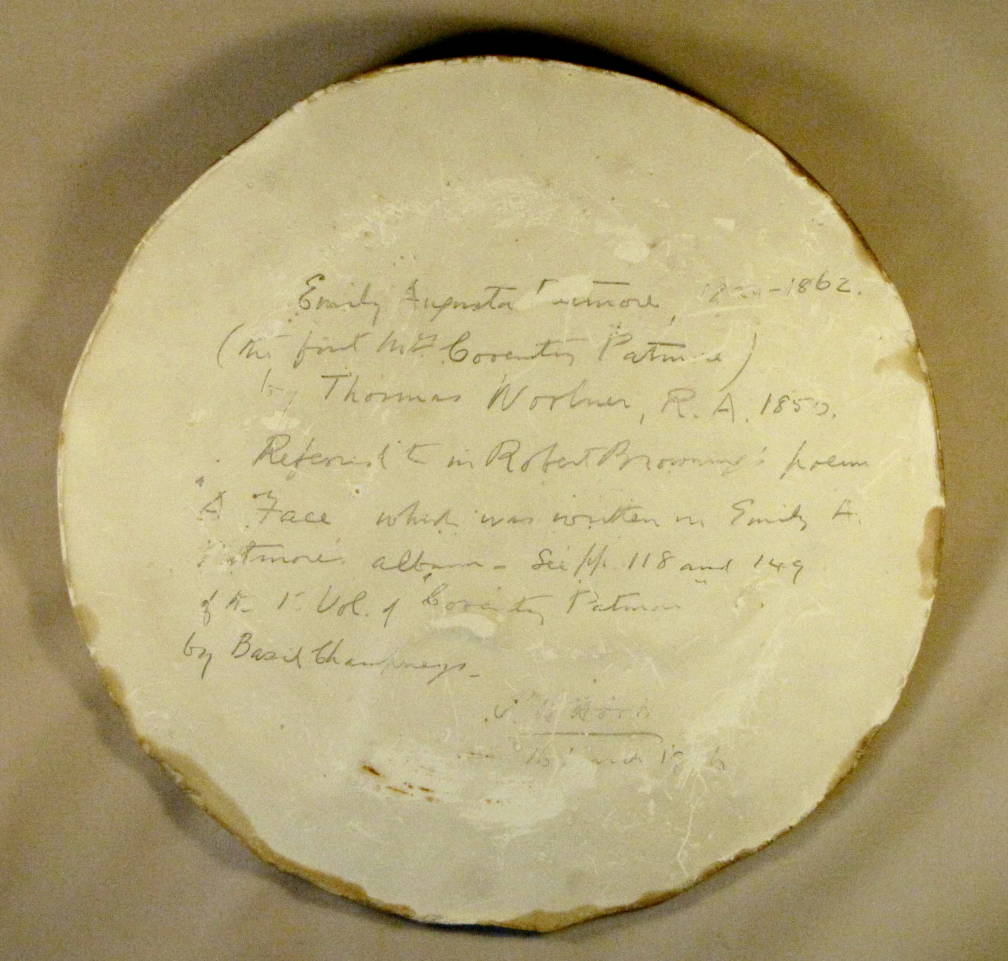 Emily Augusta Patmore, -1862.
(the first Mrs Coventry Patmore)
by Thomas Woolner, R.A. 1850.
Referred to in Robert Browning's poem
"A Face" which was written in Emily A.
Patmore's album - See pp. 118 and 149
of the 1st Vol. of "Coventry Patmore"
by Basil Champneys.